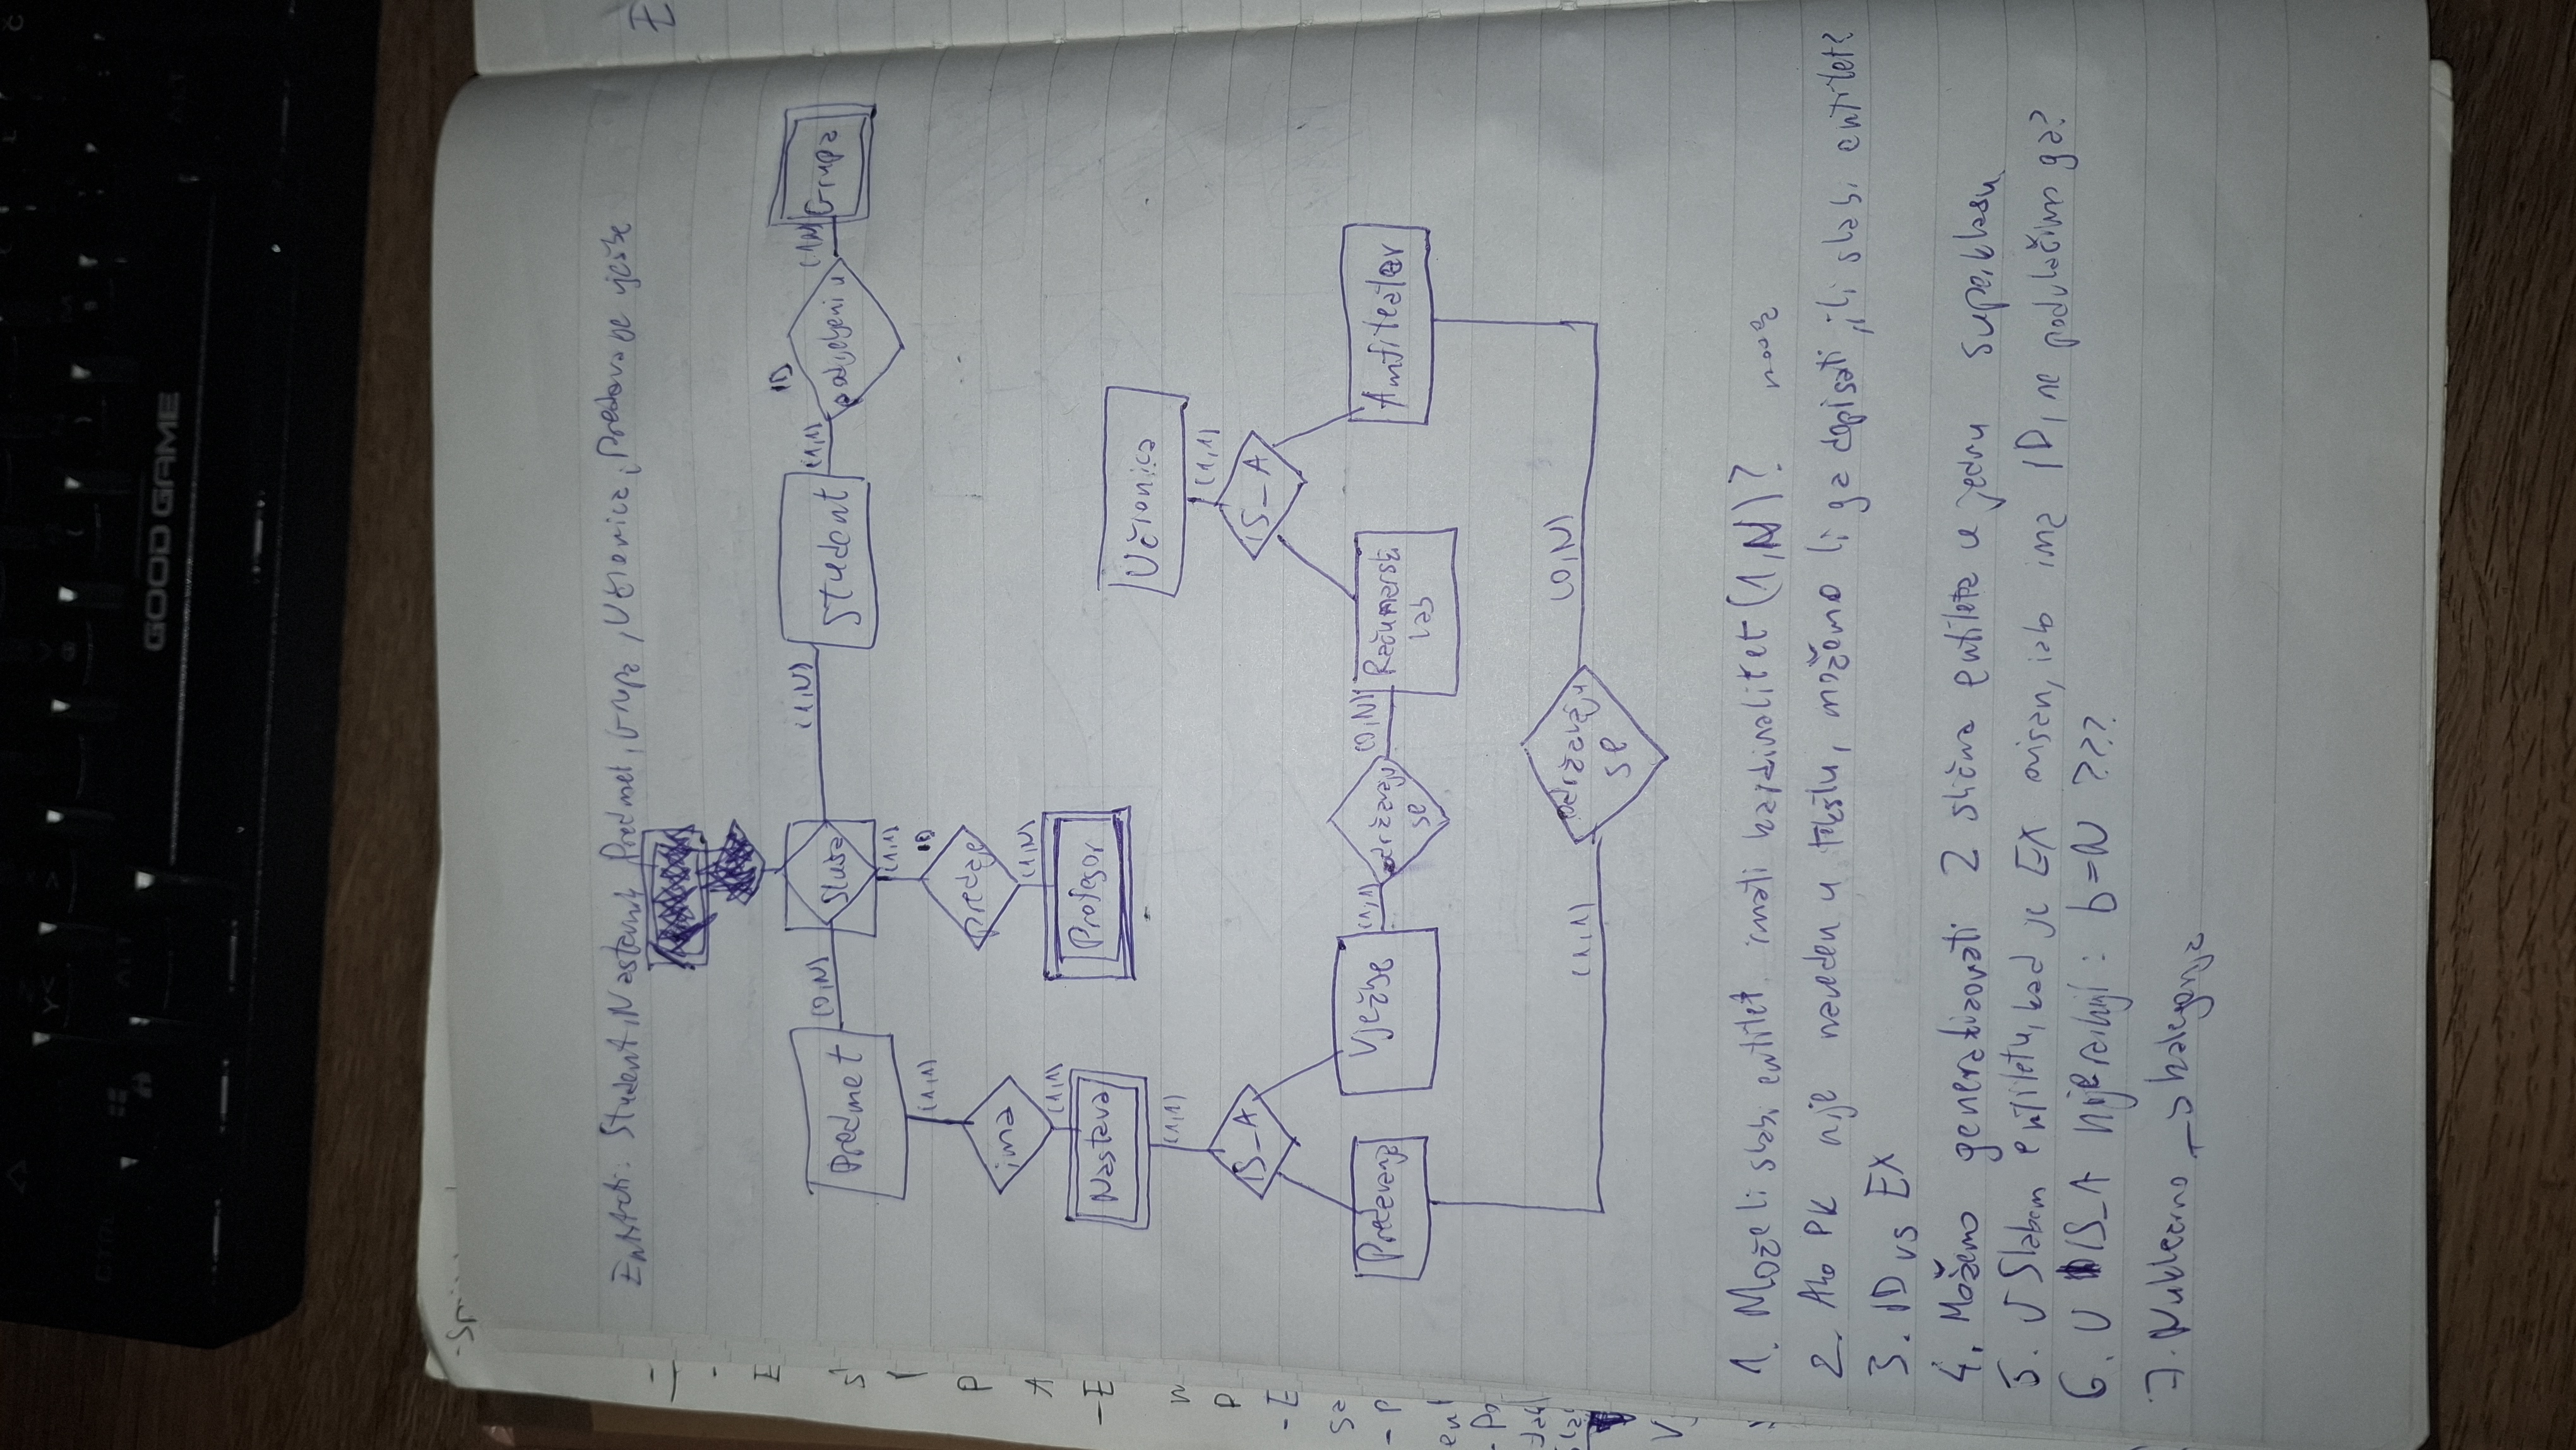 GOOD GAME
CTRL
ALT
Student, Nastavnik Predmet, Grupa, Učionica,
Predmet
(0,N)
sluša
(1,N)
Student
(1,1)
ID
podijeljeni u
(1,N)
Grupa
(1,1)
(1,1)
ID
ima
predaje
(1,1)
(1,N)
Nastava
Profesor
Učionica
(1,1)
(1,1)
IS_A
IS_A
Predavanja
Vježbe
(1,1)
održavaju
se
(0,N)
Računarski
lab
Amfiteatar
(1,1)
održavaju
se
(0,N)
1. Može li slabi entitet imati kardinalitet (1,N)?
2. Ako PK nije naveden u tekstu, možemo li ga dopisati, ili slabi entitet?
3. ID vs EX
4. Možemo generalizovati 2 slična entiteta u jednu superklasu
5. U Slabom entitetu, kad je EX ovisan, iako ima ID, ne podvlačimo ga?
6. U IS_A hijerarhiji: b=N ???
7. Nuklearno → kategorija